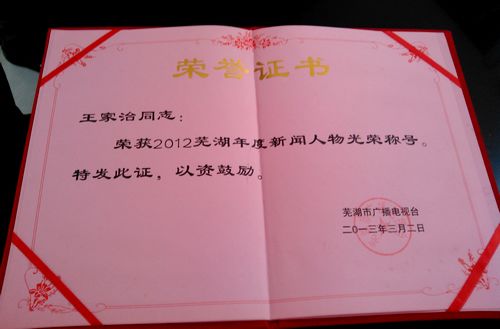 荣誉证书
王家治同志：
荣获2012芜湖年度新闻人物光荣称号。
特发此证，以资鼓励。
芜湖市广播电视台
二〇一三年三月二日